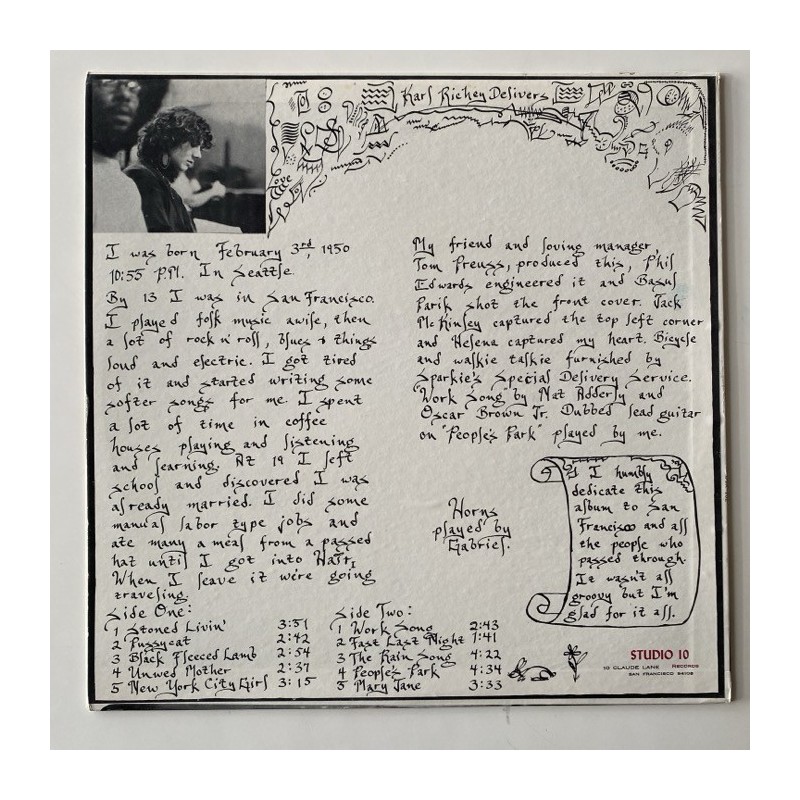 Karl Richey Delivers
Love
I was born February 3rd, 1950
10:55 P.M. In Seattle
By 13 I was in San Francisco.
I played folk music awile, then
a lot of rock n' roll, blues & things
loud and electric. I got tired
of it and started writing some
softer songs for me. I spent
a lot of time in coffee
houses playing and listening
and learning. At 19 I left
school and discovered I was
already married. I did some
manual labor type jobs and
ate many a meal from a passed
hat until I got into HAIR,
When I leave it we're going
traveling.
My friend and loving manager,
Tom Preuss, produced this, Phil
Edwards engineered it and Basul
Parik shot the front cover. Jack
McKinley captured the top left corner
and Helena captured my heart. Bicycle
and walkie talkie furnished by
Sparkie's Special Delivery Service.
"Work Song" by Nat Adderly and
Oscar Brown Jr. Dubbed lead guitar
on "People's Park" played by me.
Horns
played by
Gabriel.
I humbly
dedicate this
album to San
Francisco and all
the people who
passed through.
It wasn't all
groovy but I'm
glad for it all.
Side One:
1 Stoned Livin' 3:51
2 Pussycat 2:42
3 Black Fleeced Lamb 2:54
4 Unwed Mother 2:37
5 New York City Girl 3:15
Side Two:
1 Work Song 2:43
2 Fast Last Night 1:41
3 The Rain Song 4:22
4 People's Park 4:34
5 Mary Jane 3:33
STUDIO 10
10 CLAUDE LANE RECORDS
SAN FRANCISCO 94108